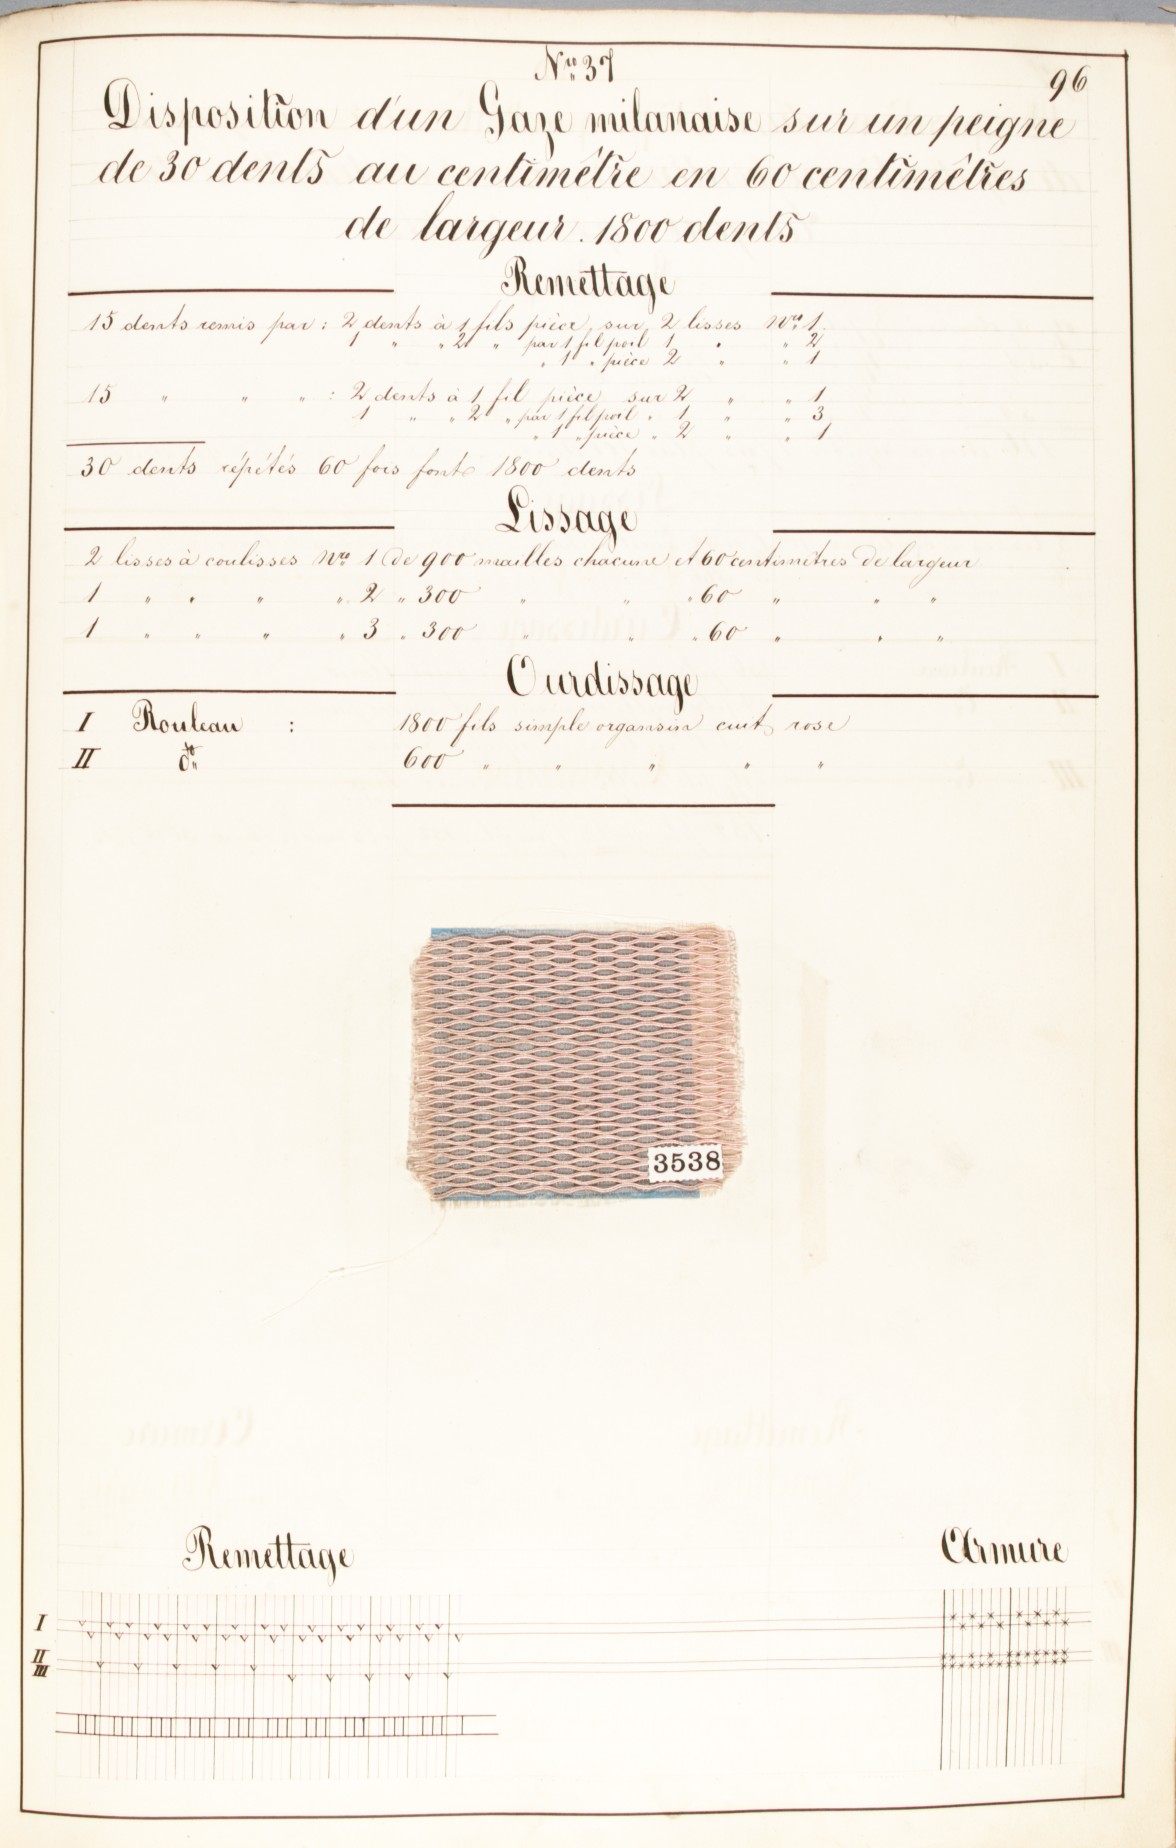 Nro 37
96
Disposition d'un Gaze milanaise sur un peigne
de 30 dents au centimêtre en 60 centimêtres
de largeur. 1800 dents
Remettage
15 dents remis par : 2 dents à 1 fils pièce sur 2 lisses Nro 1.
1 " " 2 " par 1 fil poil 1 " " 2
" 1 " pièce 2 " " 1
15 " " " : 2 dents à 1 fil pièce sur 2 " " 1
1 " " 2 " par 1 fil poil " 1 " " 3
" 1 " pièce " 2 " " 1
30 dents répétés 60 fois font 1800 dents
Lissage
2 lisses à coulisses Nro 1 de 900 mailles chacune et 60 centimêtres de largeur
1 " " " " 2 " 300 " " " 60 " " "
1 " " " " 3 " 300 " " " 60 " " "
Ourdissage
I Rouleau : 1800 fils simple organsin cuit rose
II dto 600 " " " " "
3538
Remettage
Armure
I
II
III